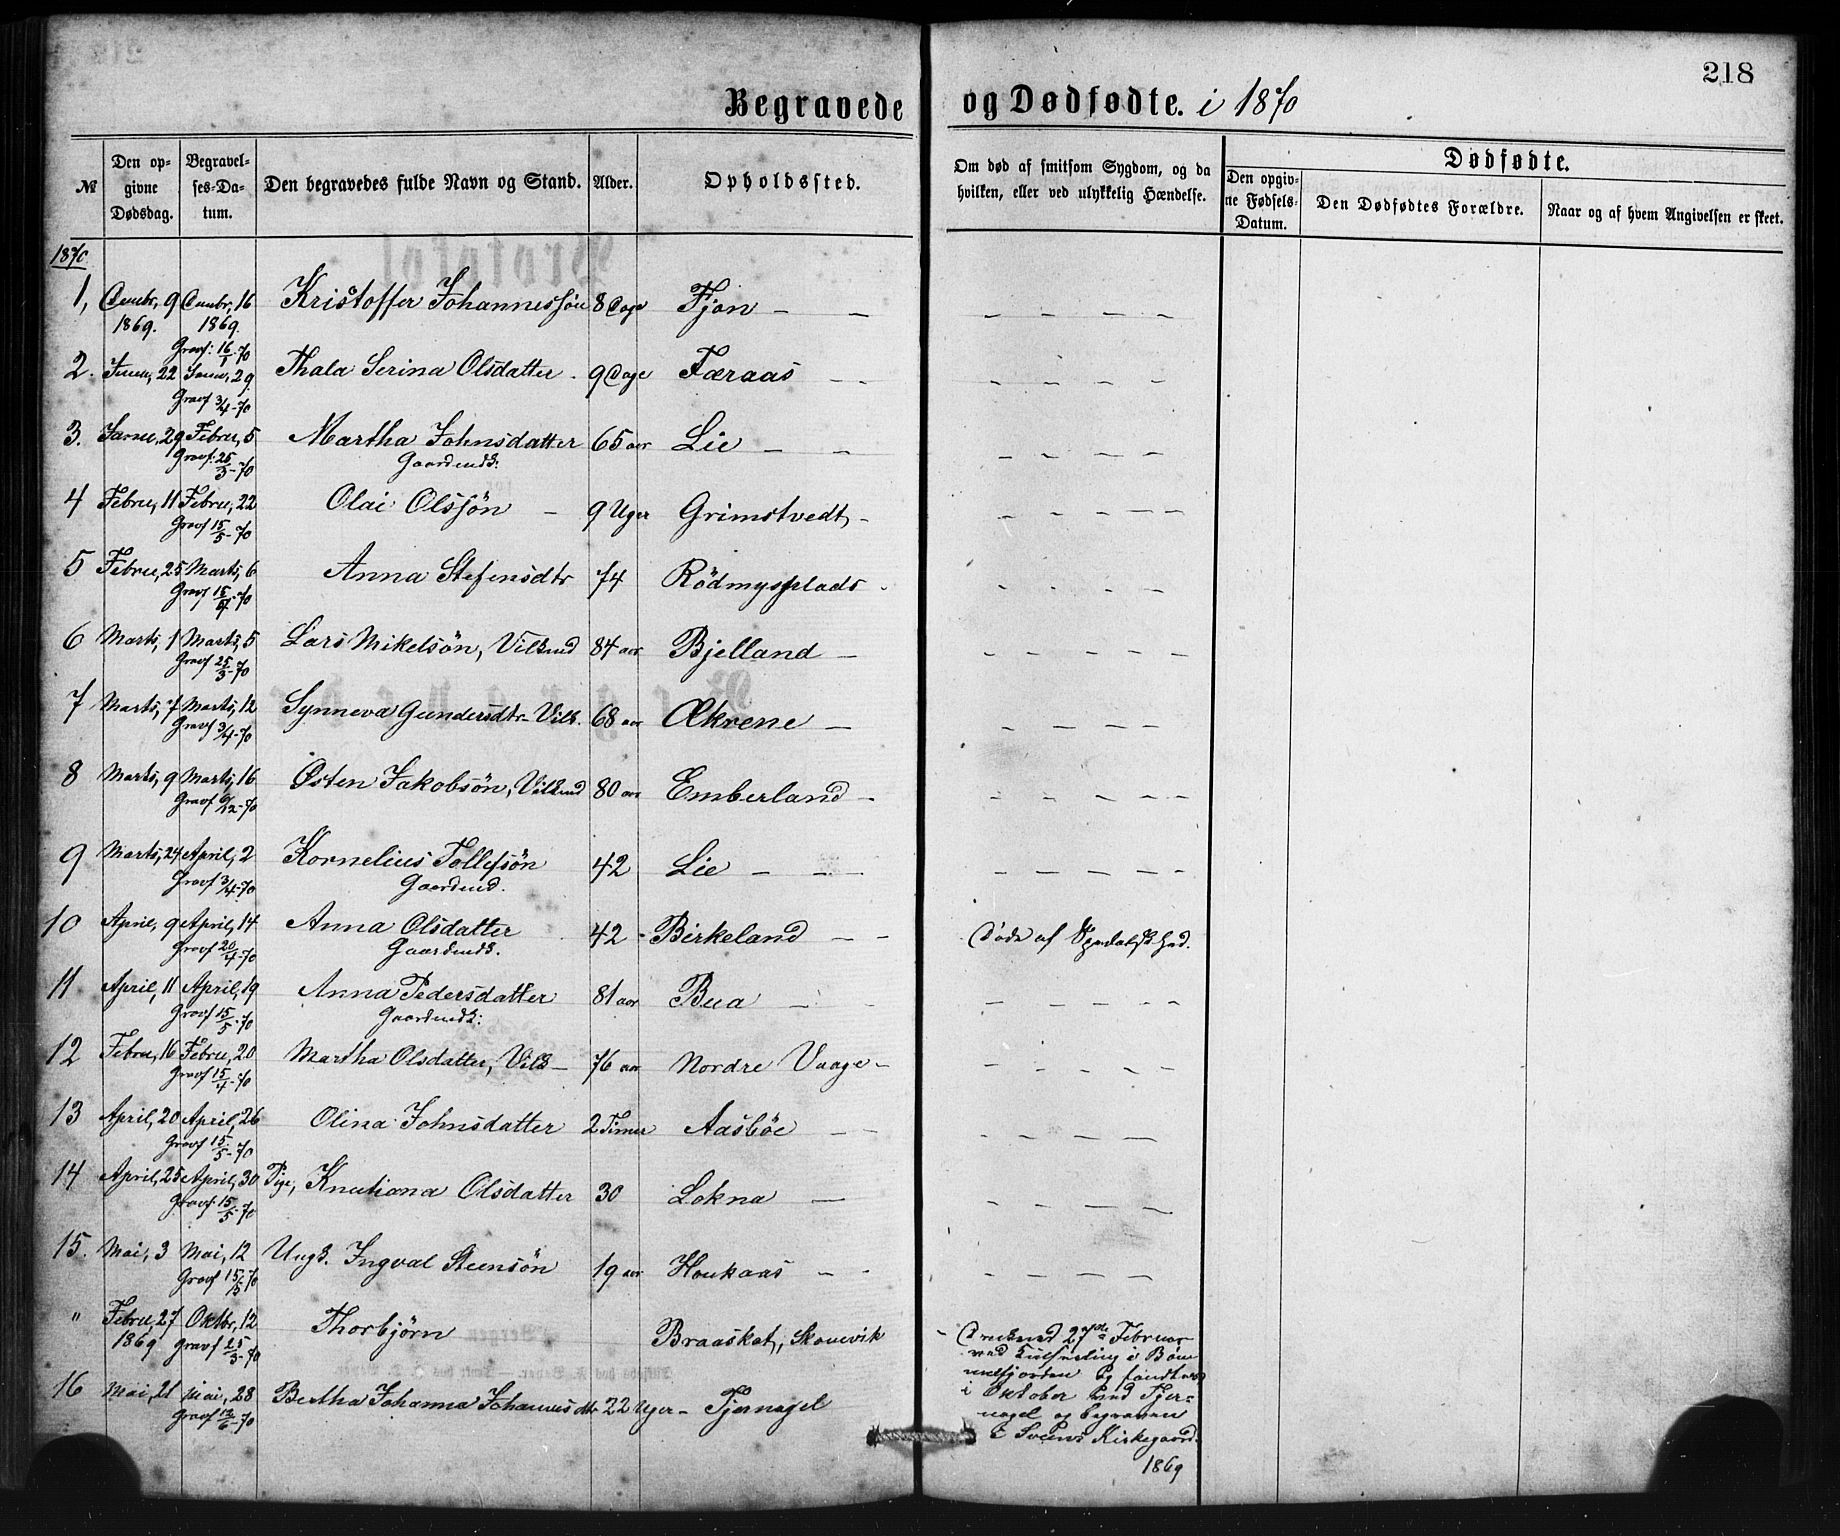 218
Begravede og Dødfødte. i 1870
№
Den opgivne Dødsdag.
Begravelses-Datum.
Den begravedes fulde Navn og Stand.
Alder.
Opholdssted.
Om død af smitsom Sygdom, og da hvilken, eller ved ulykkelig Hændelse.
Dødfødte.
Den opgivne Fødsels-Datum.
Den Dødfødtes Forældre.
Naar og af hvem Angivelsen er skeet.
1870
1, Decbr, 9 Decbr, 16 Kristoffer Johannessøn 8 Dage Fjon
1869. 1869.
Gravf: 16/1-70
2. Janu, 22 Janu, 29 Thala Serina Olsdatter 9 Dage Færaas
Gravf 3/4-70
3. Janu, 29 Febru, 5 Martha Johnsdatter 65 aar Lie
Gravf: 25/3-70 Gaardmdk:
4 Febru, 11 Febru, 22 Olai Olssøn 9 Uger Grimstvedt
Gravf 15/5-70
5 Febru, 25 Marts, 6 Anna Stefensdtr 74 Rödmysplads
Gravf
6 Marts, 1 Marts, 5 Lars Mikelsøn, Vilkmd 84 aar Bjelland
Gravf 25/3-70
7 Marts, 7 Marts, 12 Synneva Gundersdtr Vilk. 68 aar Ækrene
Gravf 3/4-70
8 Marts, 9 Marts, 16 Østen Jakobsøn, Vilkmd 80 aar Emberland
Gravf 6/12-70
9 Marts, 24 April, 2 Kornelius Tollefsøn 42 Lie
Gravf 3/4-70 Gaardmd.
10 April, 9 April, 14 Anna Olsdatter 42 Birkeland Døde af Spedalskhed.
Gravf 20/4-70 Gaardmdk.
11 April, 11 April, 19 Anna Pedersdatter 81 aar Bua
Gravf 15/5-70 Gaardmdk:
12 Febru, 16 Febru, 20 Martha Olsdatter, Vilk 76 aar Nordre Vaage
Gravf 15/4-70
13 April, 20 April, 26 Olina Johnsdatter 2 Timer Aasbøe
Gravf 15/5-70
14 April, 25 April, 30 Pige, Knutiana Olsdatter 30 Lokna
Gravf 15/5-70
15. Mai, 3 Mai, 12 Ungk. Ingval Steensøn 19 aar Houkaas
Gravf 15/5 70
" Febru, 27 Oktbr, 12 Thorbjørn Braaskat, Skonevik
1869 Gravf 25/3-70
Druknede 27de Februar
ved Kulseiling i Bøm-
melfjorden og fandtes
i Oktober ved Tjer-
nagel og begraven
Sveens Kirkegaard.
1869
16 Mai, 21 Mai, 28 Bertha Johanna Johannesdtr 22 Uger Tjernagel
Gravf 12/6-70